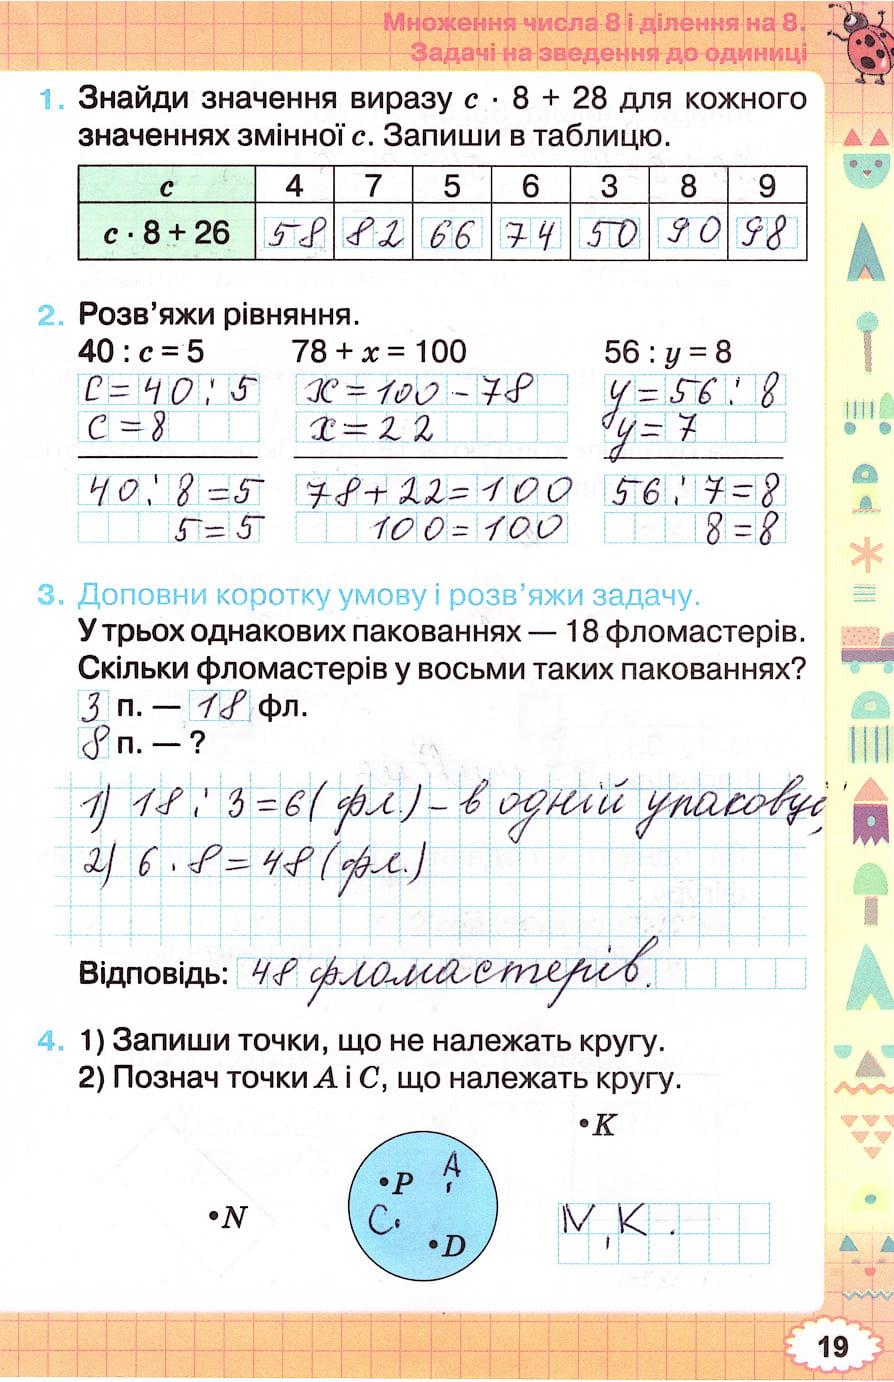 Множення числа 8 і ділення на 8.
Задачі на зведення до одиниці
1. Знайди значення виразу c · 8 + 28 для кожного
значеннях змінної c. Запиши в таблицю.
c 4 7 5 6 3 8 9
c · 8 + 26 58 82 66 74 50 90 98
2. Розв’яжи рівняння.
40 : c = 5 78 + x = 100 56 : y = 8
c = 40 : 5 x = 100 - 78 y = 56 : 8
c = 8 x = 22 y = 7
40 : 8 = 5 78 + 22 = 100 56 : 7 = 8
5 = 5 100 = 100 8 = 8
3. Доповни коротку умову і розв’яжи задачу.
У трьох однакових пакованнях — 18 фломастерів.
Скільки фломастерів у восьми таких пакованнях?
3 п. — 18 фл.
8 п. — ?
1) 18 : 3 = 6 (фл.) - в одній упаковці;
2) 6 · 8 = 48 (фл.)
Відповідь: 48 фломастерів.
4. 1) Запиши точки, що не належать кругу.
2) Познач точки A і C, що належать кругу.
K
P A
N C N, K.
D
19